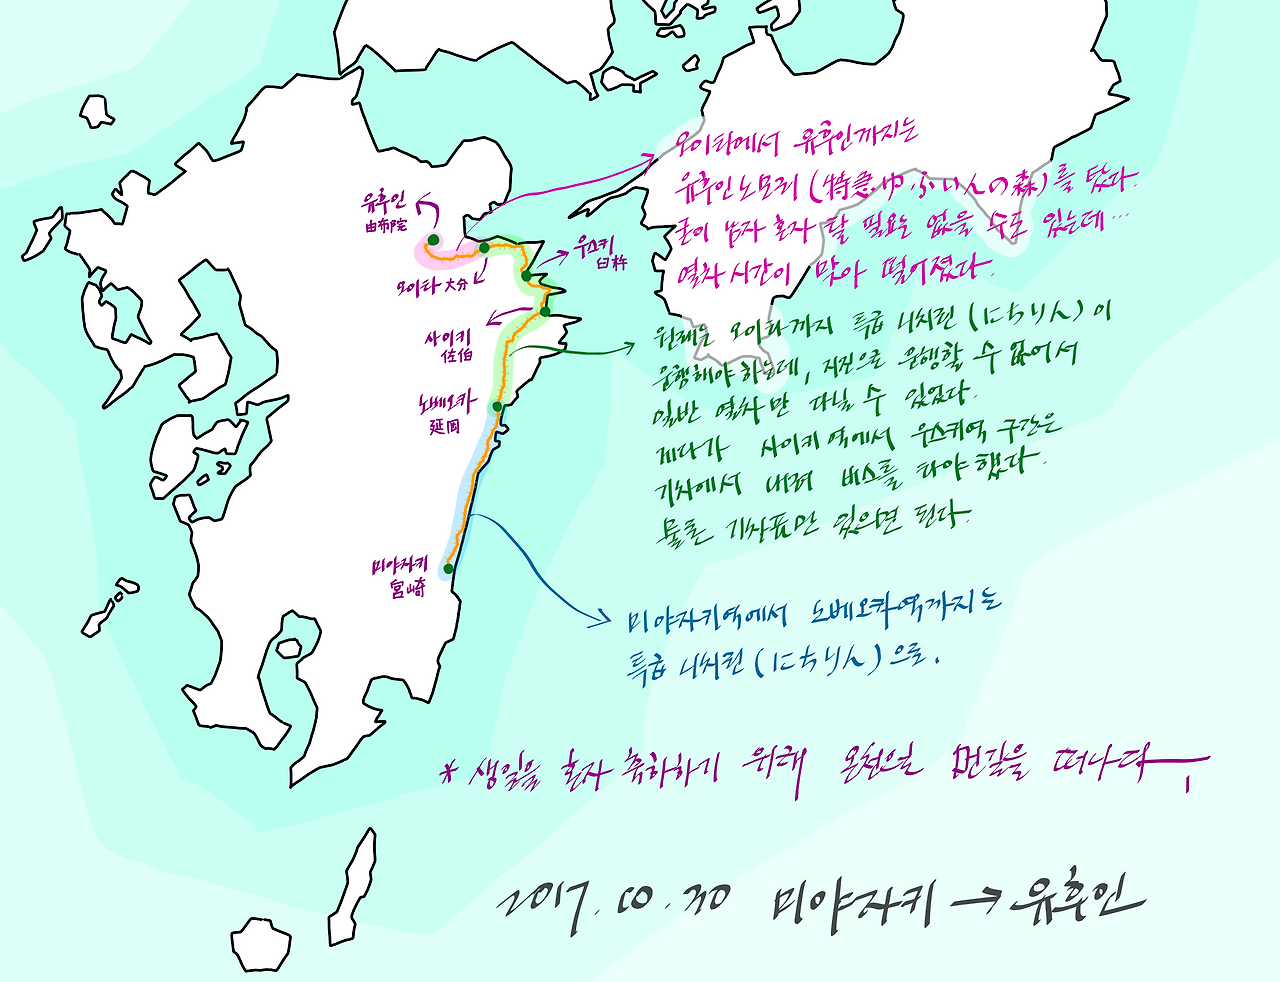 오이타에서 유후인까지는
유후인노모리 (特急ゆふいんの森)를 탔다.
굳이 남자 혼자 탈 필요는 없을 수도 있는데…
열차 시간이 맞아 떨어졌다.
유후인
由布院
우스키
臼杵
오이타 大分
사이키
佐伯
노베오카
延岡
미야자키
宮崎
원래는 오이타까지 특급 니치린 (にちりん) 이
운행해야 하는데, 지진으로 운행할 수 없어서
일반 열차만 다닐 수 있었다.
게다가 사이키역에서 우스키역 구간은
기차에서 내려 버스를 타야 했다.
물론 기차표만 있으면 된다.
미야자키역에서 노베오카역까지는
특급 니치린 (にちりん) 으로.
* 생일을 혼자 축하하기 위해 온천으로 먼길을 떠나다
2017.10.30 미야자키 → 유후인